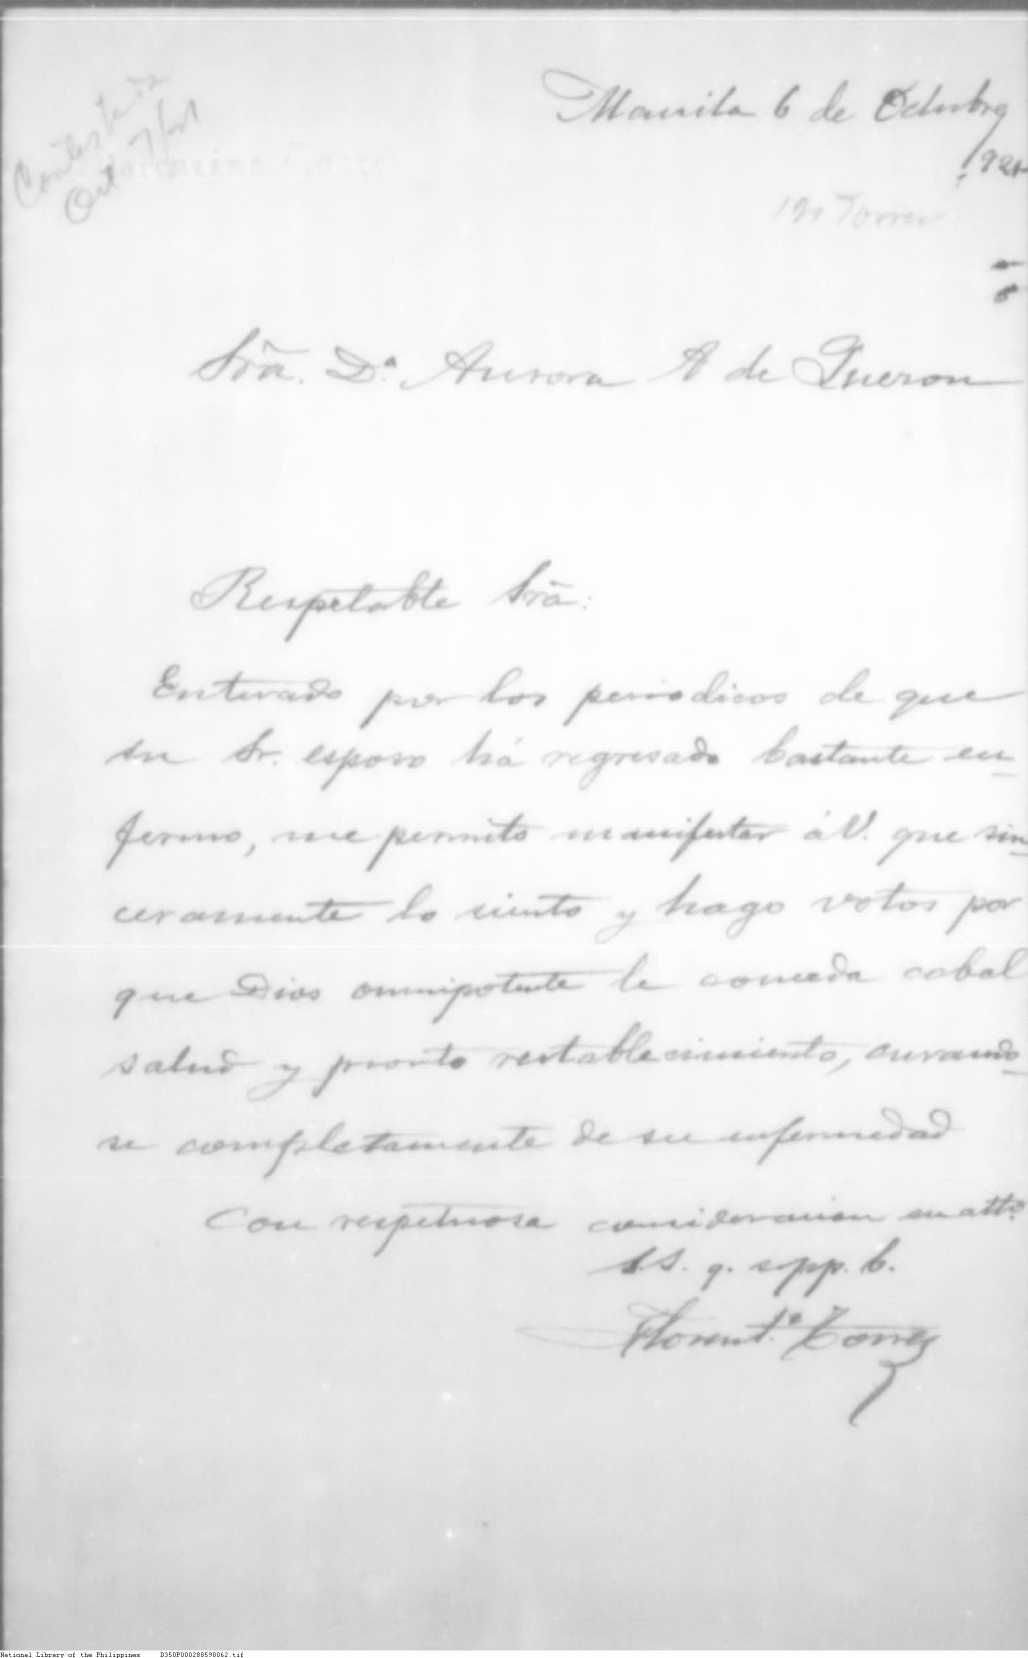 Contestada
Oct 7/21
Manila 6 de Octubre
1921
Torres
Srã. Dª. Aurora A de Quezon
Respetable Srã:
Enterado por los periodicos de que
su Sr. esposo há regresado bastante en-
fermo, me permito manifestar á V. que sin-
ceramente lo siento y hago votos por
que Dios omnipotente le conceda cabal
salud y pronto restablecimiento, curando-
se completamente de su enfermedad
Con respetuosa consideracion su attº
S.S. q. spp. b.
Florent.º Torres
National Library of the Philippines D350P000288598062.tif